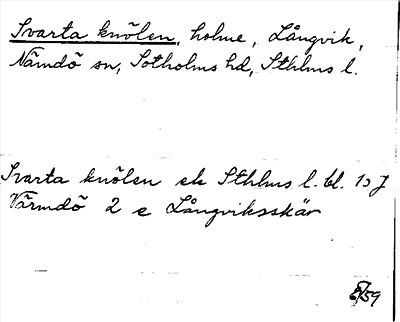 Svarta knölen, holme, Långvik,
Nämdö sn, Sotholms hd, Sthlms l.
Svarta knölen ek Sthlms l. bl.
Värmdö 2 e Långviksskär
/59